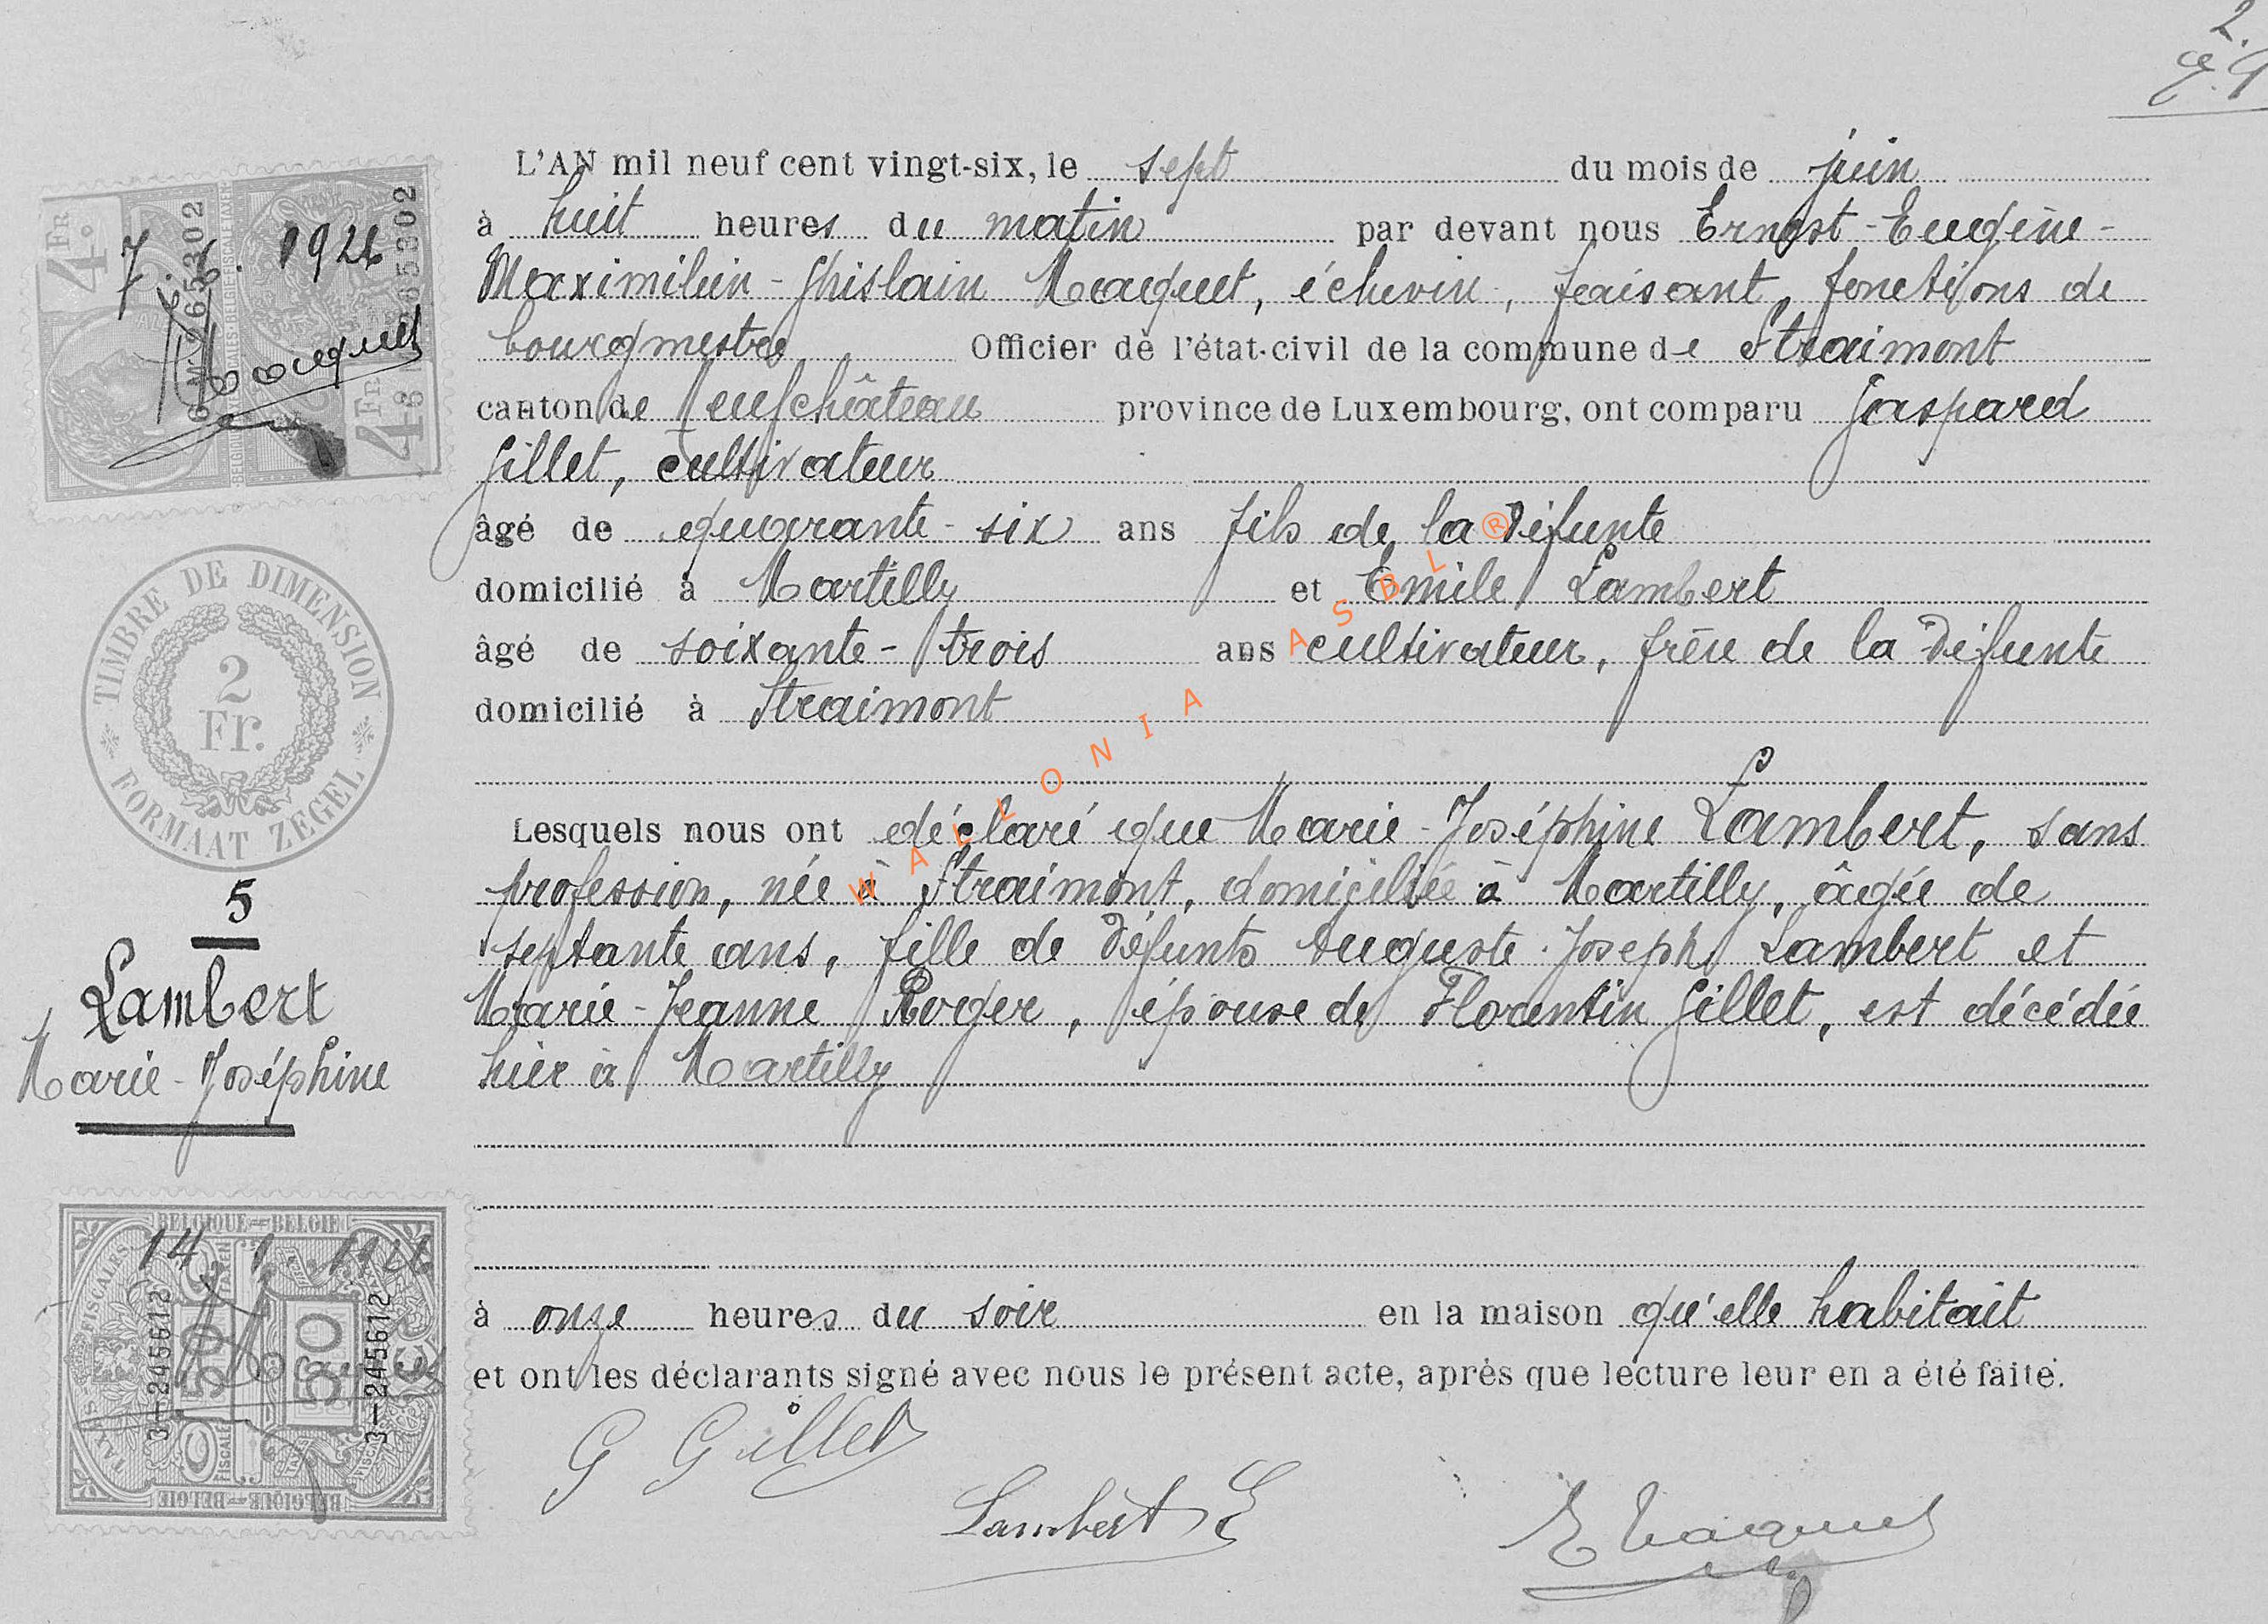 2.
L'AN mil neuf cent vingt-six, le sept du mois de juin
à huit heures du matin par devant nous Ernest-Eugène-
Maximilien-Ghislain Macquet, échevin, faisant fonctions de
bourgmestre Officier de l'état-civil de la commune de Straimont
canton de Neufchâteau province de Luxembourg, ont comparu Gaspard
Gillet, cultivateur
âgé de quarante-six ans fils de la défunte
domicilié à Martilly et Emile Lambert
âgé de soixante-trois ans cultivateur, frère de la défunte
domicilié à Straimont
Lesquels nous ont déclaré que Marie-Joséphine Lambert, sans
profession, née à Straimont, domiciliée à Martilly, âgée de
septante ans, fille de défunts Auguste-Joseph Lambert et
Marie-Jeanne Roger, épouse de Florentin Gillet, est décédée
hier à Martilly
à onze heures du soir en la maison qu'elle habitait
et ont les déclarants signé avec nous le présent acte, après que lecture leur en a été faite.
G Gillet
Lambert E
E Macquet
4 FR
7. 6. 1926
M-265302
Macquet
4 FR
TIMBRE DE DIMENSION
2
Fr.
FORMAAT ZEGEL
5
Lambert
Marie-Joséphine
BELGIQUE-BELGIE
14. 1. 1926
3-245612
50
50
3-245612
BELGIQUE-BELGIE
WALLONIA ASBL ®